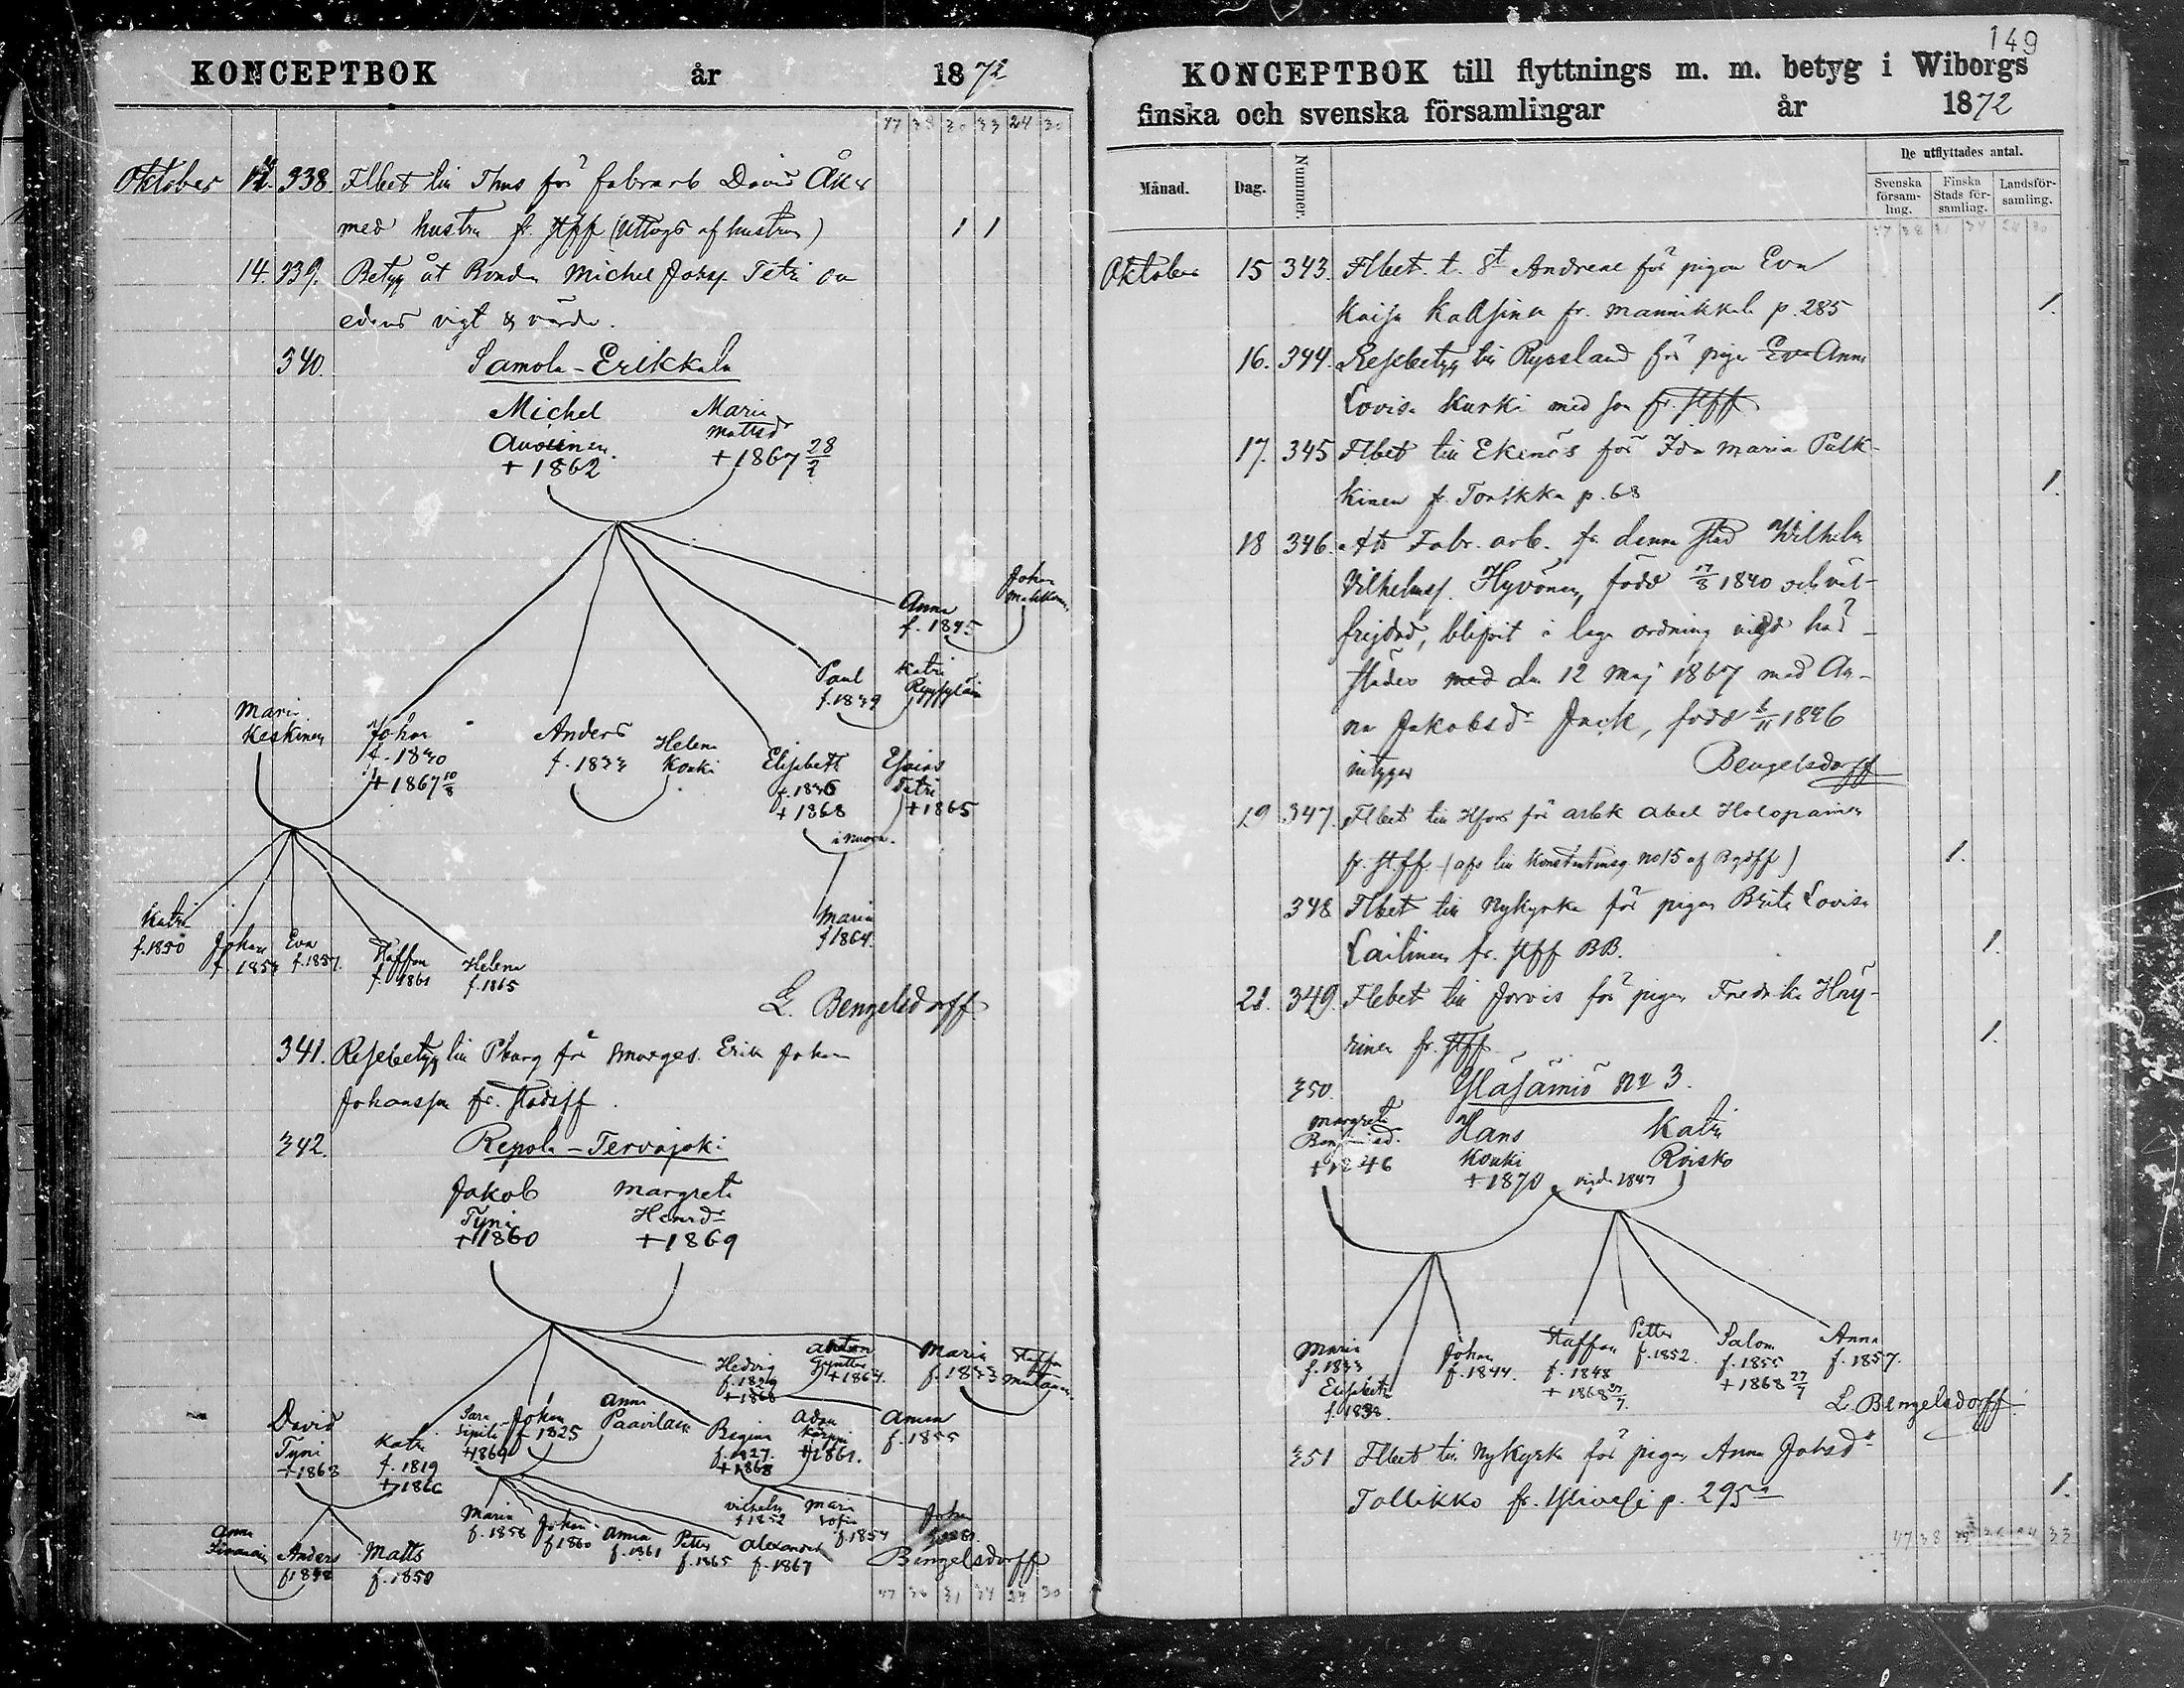 KONCEPTBOK år 1872
47 38 30 33 24 30
Oktober 12. 338 Flbet till Thus för fabrarb David Åker
med hustru fr. stff (uttogs af hustrun) 1 1
14. 339. Betyg åt Bonden Michel Johsf. Tetri om
edens vigt & värde.
340. Samola-Erikkala
Michel Maria
Auvinen Mattsdr
+ 1862 + 1867 28/2
Anna f. 1845 Johan
Paul f. 1839 Katri
Maria Keskinen
Johan f. 1830 + 1867 10/8
Anders f. 1833
Helena Kouki
Elisabeth f. 1836 + 1868
Esaias Tetri + 1865
Katri f. 1850
Johan f. 1853
Eva f. 1857.
Staffan f. 1861
Helena f. 1865
Maria f 1864.
L. Bengelsdorff
341. Resebetyg till Pburg för Erik Johan
Johansson fr. stadsff.
342. Repola-Tervajoki
Jakob Margreta
Tyni Henrdr
+ 1860 + 1869
Hedvig f. 1829 + 1868
Anton + 1864.
Maria f. 1833
Staffan
David Tyni + 1868
Katri f. 1819 + 1866
Sara Sipilä + 1869
Johan f. 1825
Anna Paavilain
Regina f. 1827. + 1868
Adam Karppi + 1861.
Anna f. 1855
Maria f. 1858
Johan f 1860
Anna f. 1861
Petter f. 1865
Alexander f. 1867
Vilhelm f 1852
Maria Sofia f. 1854
Joh
Anna
Anders
Matts f. 1850
Bengelsdorff
47 38 31 34 24 30
149
KONCEPTBOK till flyttnings m. m. betyg i Wiborgs
finska och svenska församlingar år 1872
Månad. Dag. Nummer. De utflyttades antal.
Svenska församling. Finska Stads församling. Landsförsamling.
47 38 31 34 24 30
Oktober 15 343. Flbet. t. St Andreae för pigan Eva
Kaisa fr. Mannikkala p. 285 1.
16. 344. Resebetyg till Ryssland för pigan Eva Anna
Lovisa Kurki med son fr. stff
17. 345 Flbet till Ekenäs för Ida Maria Pulk-
kinen fr. Torikka p. 68 1.
18 346. Att Fabr. arb. fr. denna stad Wilhelm
Vilhelmsf. Hyvönen, född 17/8 1840 och väl-
frejdad, blifvit i laga ordning vigd här-
städes med den 12 Maj 1867 med An-
na Jakobsdr Jack, född 6/11 1846
intygar Bengelsdorff
19 347. Flbet till Hfors för arbk Abel Holopainen
fr. stff. (afs till no 15 af Bgdff) 1.
348 Flbet till Nykyrka för pigan Brita Lovisa
Laitinen fr. stff BB. 1.
21. 349. Flbet till Jorois för pigan Fredrika Häy-
rinen fr. stff 1.
350. Yläsämiö No 3.
Margreta Hans Katri
Kouki Roisko
+ 1846 + 1870 vigda 1847
Maria f. 1833
Elisabeth f. 1838.
Johan f. 1844.
Staffan f. 1848 + 1868 27/7.
Petter f. 1852.
Salom f. 1855 + 1868 27/7
Anna f. 1857.
L. Bengelsdorff
351 Flbet till Nykyrka för pigan Anna Johsdr
Tollikko fr. Ylivesi p. 295a 1.
47 38